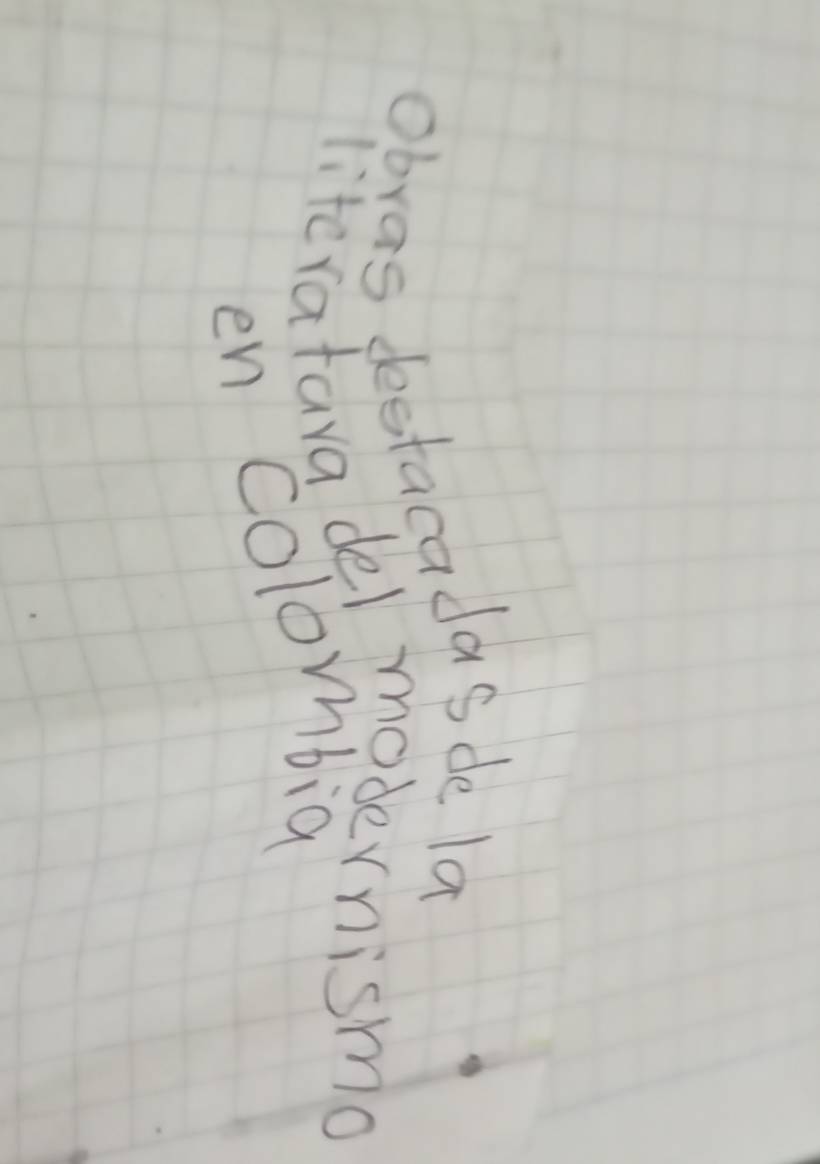 Obras destacadas de la
literatura del modernismo
en Colombia